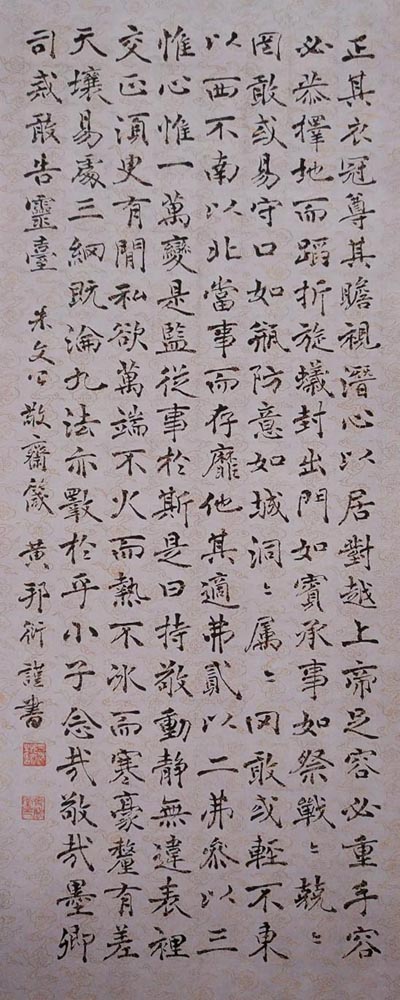 正其衣冠尊其瞻視潛心以居對越上帝足容必重手容
必恭擇地而蹈折旋蟻封出門如賓承事如祭戰〻兢〻
罔敢或易守口如瓶防意如城洞〻属〻罔敢或輕不東
以西不南以北當事而存靡他其適弗貳以二弗參以三
惟心惟一萬變是監從事於斯是曰持敬動静無違表裡
交正須臾有閒私欲萬端不火而熱不冰而寒豪釐有差
天壤易處三綱既淪九法亦斁於乎小子念哉敬哉墨卿
司戒敢告靈臺 朱文公敬齋箴 黃邦衍謹書